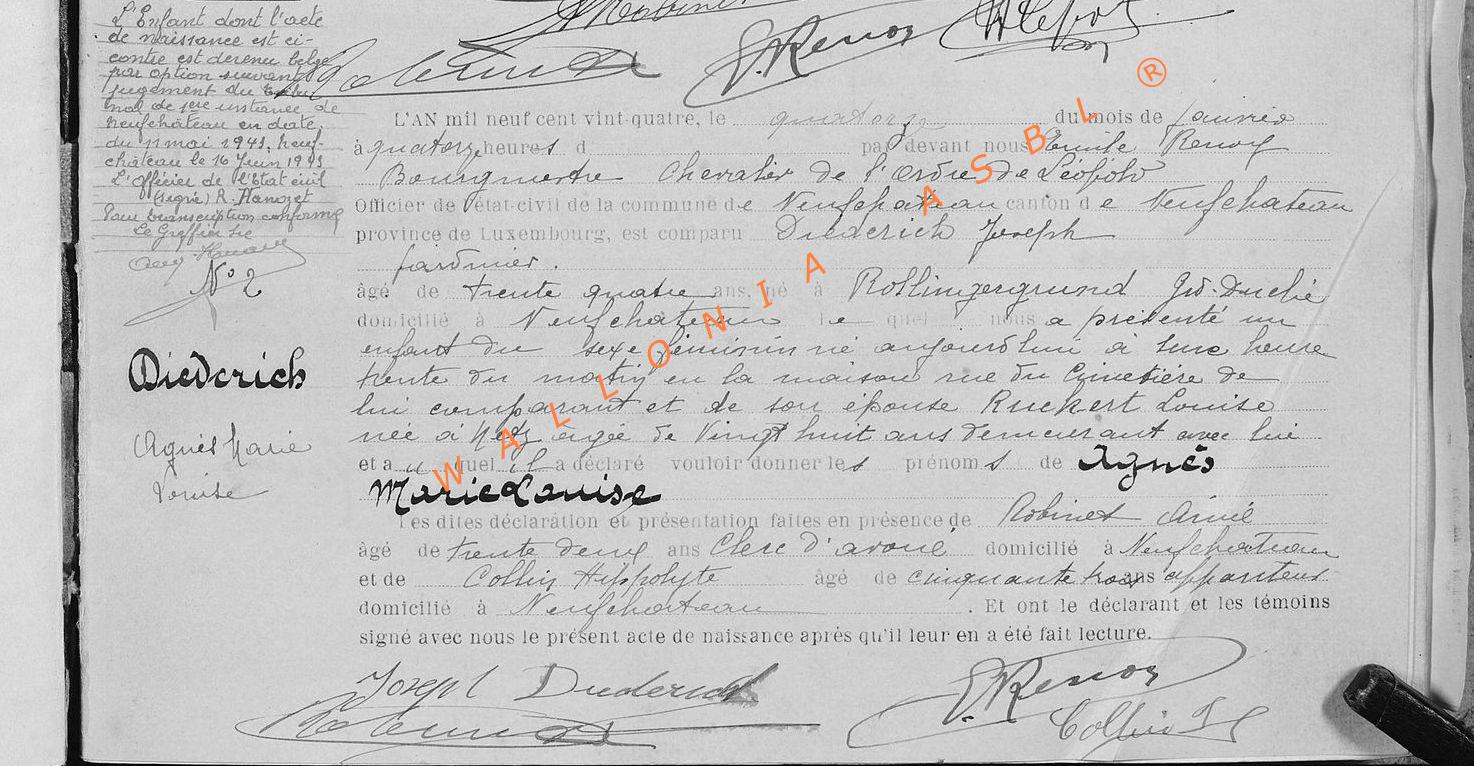 L'Enfant dont l'acte
de naissance est ci-
contre est devenu belge
par option suivant
jugement du tribu
nal de 1ere instance de
Neufchateau en date
du 11 mai 1943, Neuf-
chateau le 16 Juin 1943
L'Officier de l'Etat civil
(signé) R. Hanozet
Pour transcription conforme
Le Greffier
N° 2
Diederich
Agnès Marie
Louise
E. Renoz
L'AN mil neuf cent vint-quatre, le quatorze du mois de janvier
à quatorze heures d par devant nous Emile Renoz
Bourgmestre Chevalier de l'ordre de Léopold
Officier de l'état-civil de la commune de Neufchateau canton de Neufchateau
province de Luxembourg, est comparu Diederich Joseph
jardinier.
âgé de trente quatre ans, né à Rollingergrund Gd. Duché
domicilié à Neufchateau le quel nous a présenté un
enfant du sexe féminin né aujourd'hui à une heure
trente du matin en la maison rue du Cimetière de
lui comparant et de son épouse Ruckert Louise
née à Metz agée de vingt huit ans demeurant avec lui
et au quel il a déclaré vouloir donner les prénoms de Agnès
Marie Louise
Les dites déclaration et présentation faites en présence de Robinet Aimé
âgé de trente deux ans Clerc d'avoué domicilié à Neufchateau
et de Collin Hippolyte âgé de cinquante trois ans appariteur
domicilié à Neufchateau . Et ont le déclarant et les témoins
signé avec nous le présent acte de naissance après qu'il leur en a été fait lecture.
Joseph Diederich
E. Renoz
Collin H
WALLONIA ASBL ®